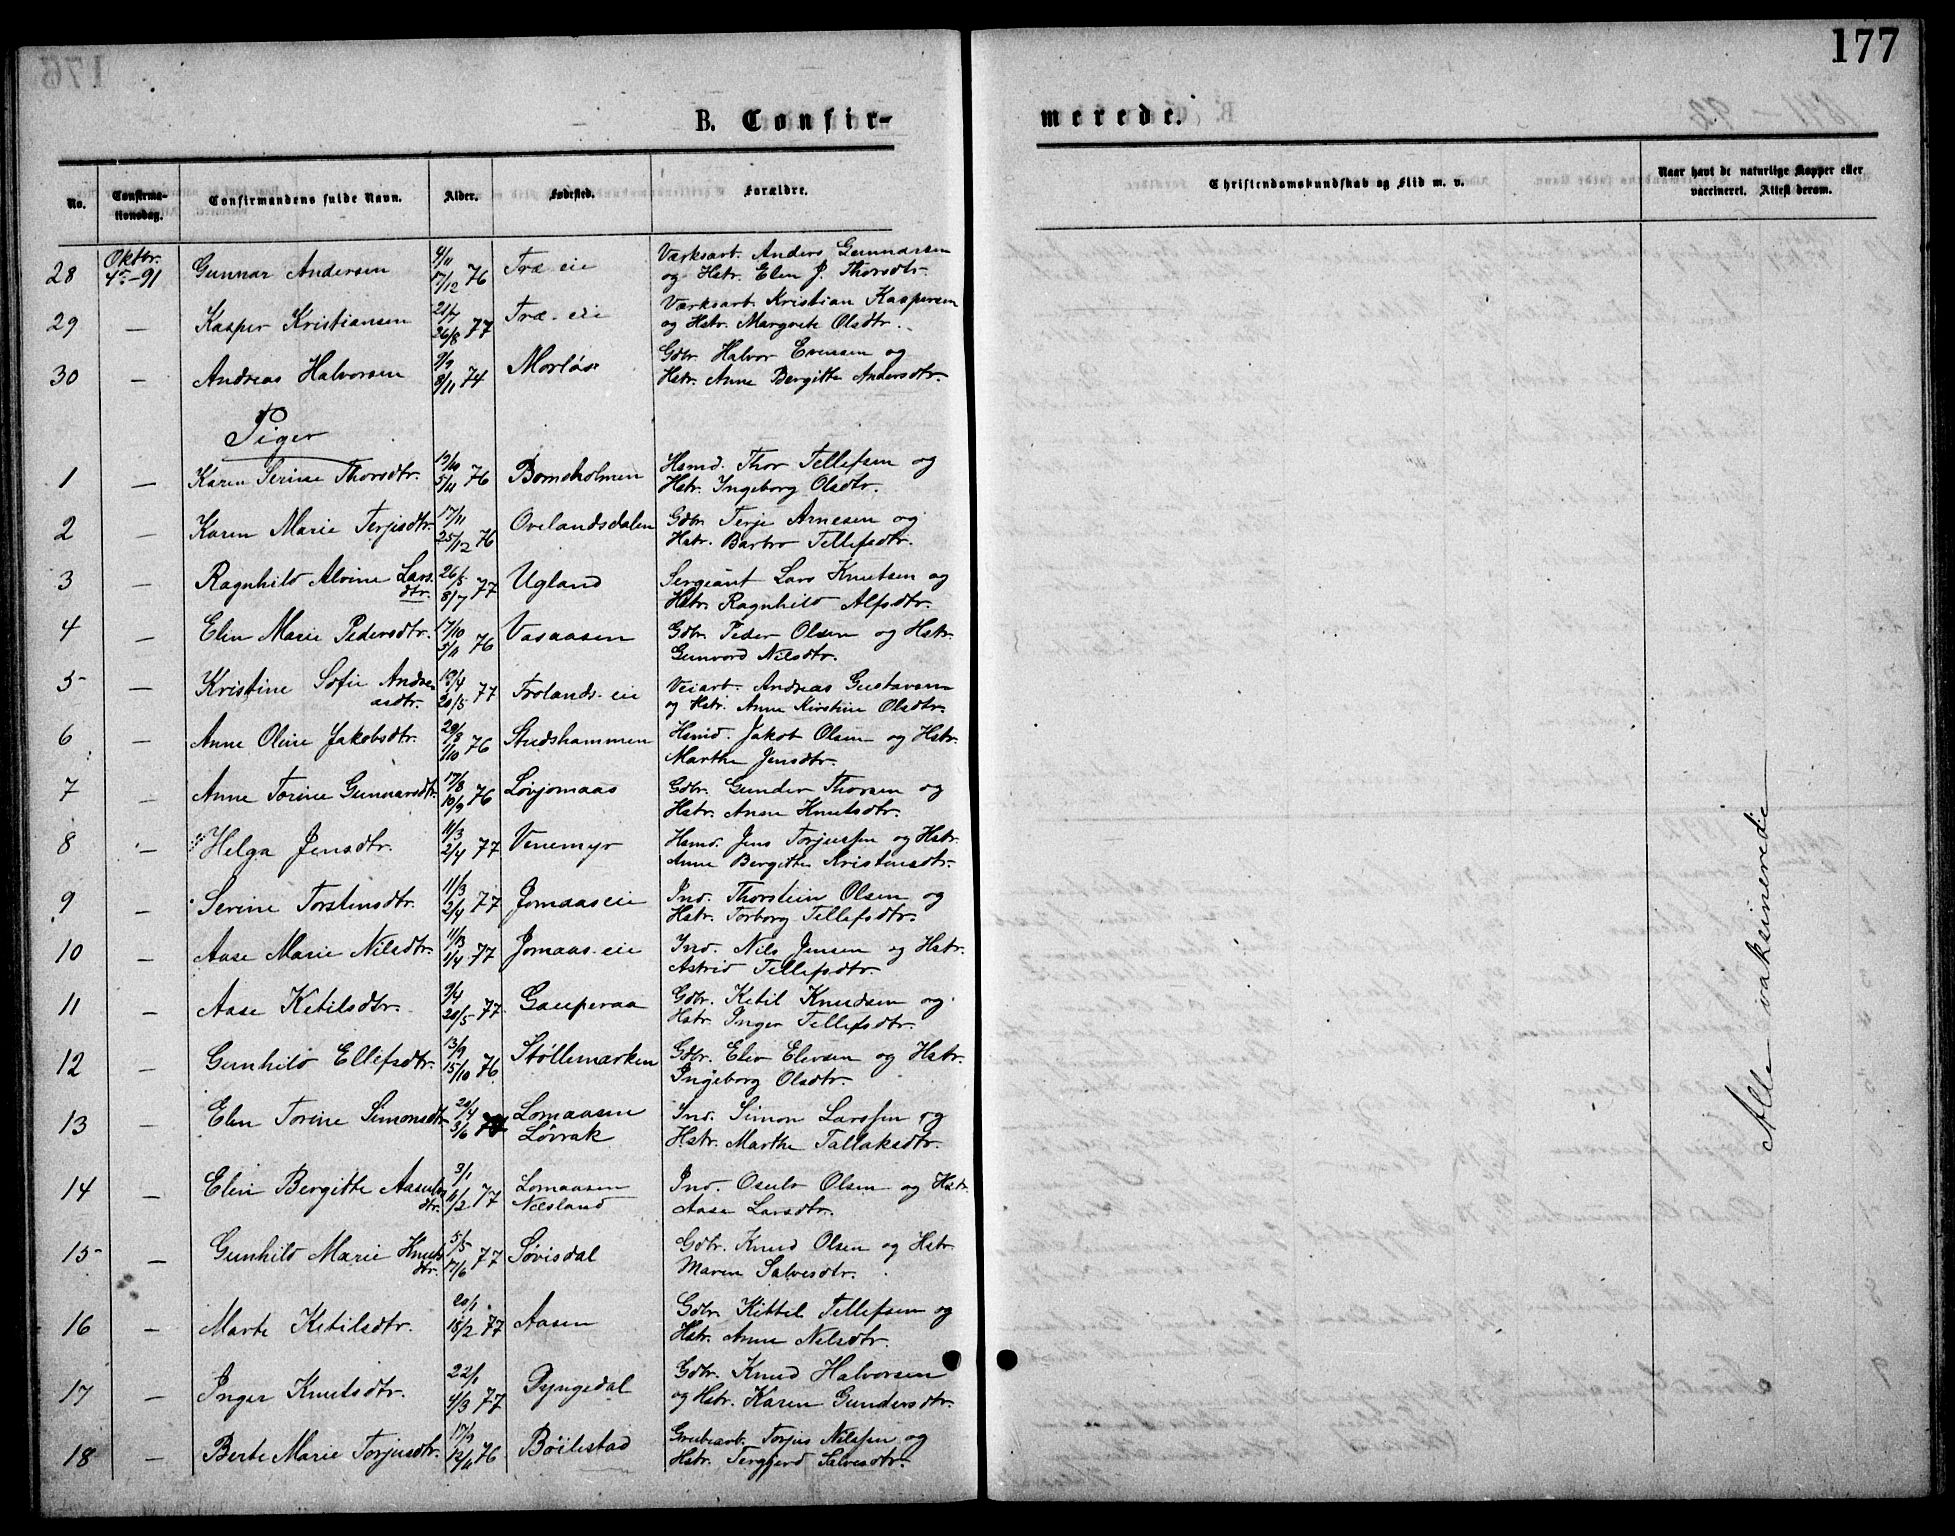 177
B. Confir-
merede.
No.
Confirma-
tionsdag.
Confirmandens fulde Navn.
Alder.
Fødested.
Forældre.
Christendomskundskab og Flid m. v.
Naar havt de naturlige Kopper eller
vaccineret. Attest derom.
28 Oktbr. 4de-91 Gunnar Andersen 4/11 17/12 76 Træ-eie Værksarb. Anders Gunnarsen
og Hstr. Elen J. Thorsdtr.
29 — Kasper Kristiansen 21/7 26/8 77 Træ-eie Værksarb. Kristian Kaspersen
og Hstr. Margrete Olsdtr.
30 — Andreas Halvorsen 9/9 8/11 74 Morløs Gdbr. Halvor Evensen og
Hstr. Anne Bergitte Andersdtr.
Piger
1 — Karen Serine Thorsdtr. 19/10 5/11 76 Bomsholmen Hsmd. Thor Tellefsen og
Hstr. Ingeborg Olsdtr.
2 — Karen Marie Terjisdtr. 17/11 25/12 76 Ovelandsdalen Gdbr. Terje Arnesen og
Hstr. Barbro Tellefsdtr.
3 — Ragnhild Alvine Lars
dtr. 26/5 8/7 77 Ugland Sergeant Lars Knutsen og
Hstr. Ragnhild Alfsdtr.
4 — Elen Marie Pedersdtr. 17/10 5/11 76 Vasaasen Gdbr. Peder Olsen og Hstr.
Gunvord Nilsdtr.
5 — Kristine Sofie Andre
asdtr. 13/4 20/5 77 Frolands-eie Veiarb. Andreas Gustavsen
og Hstr. Anne Kirstine Olsdtr.
6 — Anne Oline Jakobsdtr. 29/8 1/10 76 Studshammen Hsmd. Jakob Olsen og Hstr.
Marthe Jensdtr.
7 — Anne Torine Gunnarsdtr. 17/8 10/9 76 Løvjomaas Gdbr. Gunder Thorsen og
Hstr. Anne Knutsdtr.
8 — Helga Jensdtr. 11/3 2/4 77 Venemyr Hsmd. Jens Torjussen og Hstr.
Anne Bergitte Kristensdtr.
9 — Serine Torstensdtr. 11/3 2/4 77 Jomaaseie Ind. Thorstein Olsen og
Hstr. Torborg Tellefsdtr.
10 — Aase Marie Nilsdtr. 11/3 1/4 77 Jomaas-eie Ind. Nils Jensen og Hstr.
Astrid Tellefsdtr.
11 — Aase Ketilsdtr. 9/4 20/5 77 Gauperaa Gdbr. Ketil Knudsen og
Hstr. Inger Tellefsdtr.
12 — Gunhild Ellefsdtr. 13/9 15/10 76 Støllemarken Gdbr. Elev Elevsen og Hstr.
Ingeborg Olsdtr.
13 — Elen Torine Simonsdtr. 20/4 3/6 Lomaasen
Løvrak Ind. Simon Larssen og
Hstr. Marthe Tallaksdtr.
14 — Elen Bergitte Aasulv
dtr. 3/1 11/2 77 Lomaasen
Næsland Ind. Osulv Olsen og Hstr.
Aase Larsdtr.
15 — Gunhild Marie Knuts
dtr. 5/5 17/6 77 Søvisdal Gdbr. Knud Olsen og Hstr.
Maren Salvesdtr.
16 — Marte Ketilsdtr. 20/1 18/2 77 Aasen Gdbr. Kittel Tellefsen og
Hstr. Anne Nilsdtr.
17 — Inger Knutsdtr. 22/1 4/3 77 Pyngedal Gdbr. Knud Halvorsen
og Hstr. Karen Gundersdtr.
18 — Berte Marie Torjusdtr. 17/9 12/11 76 Bøilestad Grubearb. Torjus Nilssen og
Hstr. Tergjerd Salvesdtr.
Alle vaksinerede